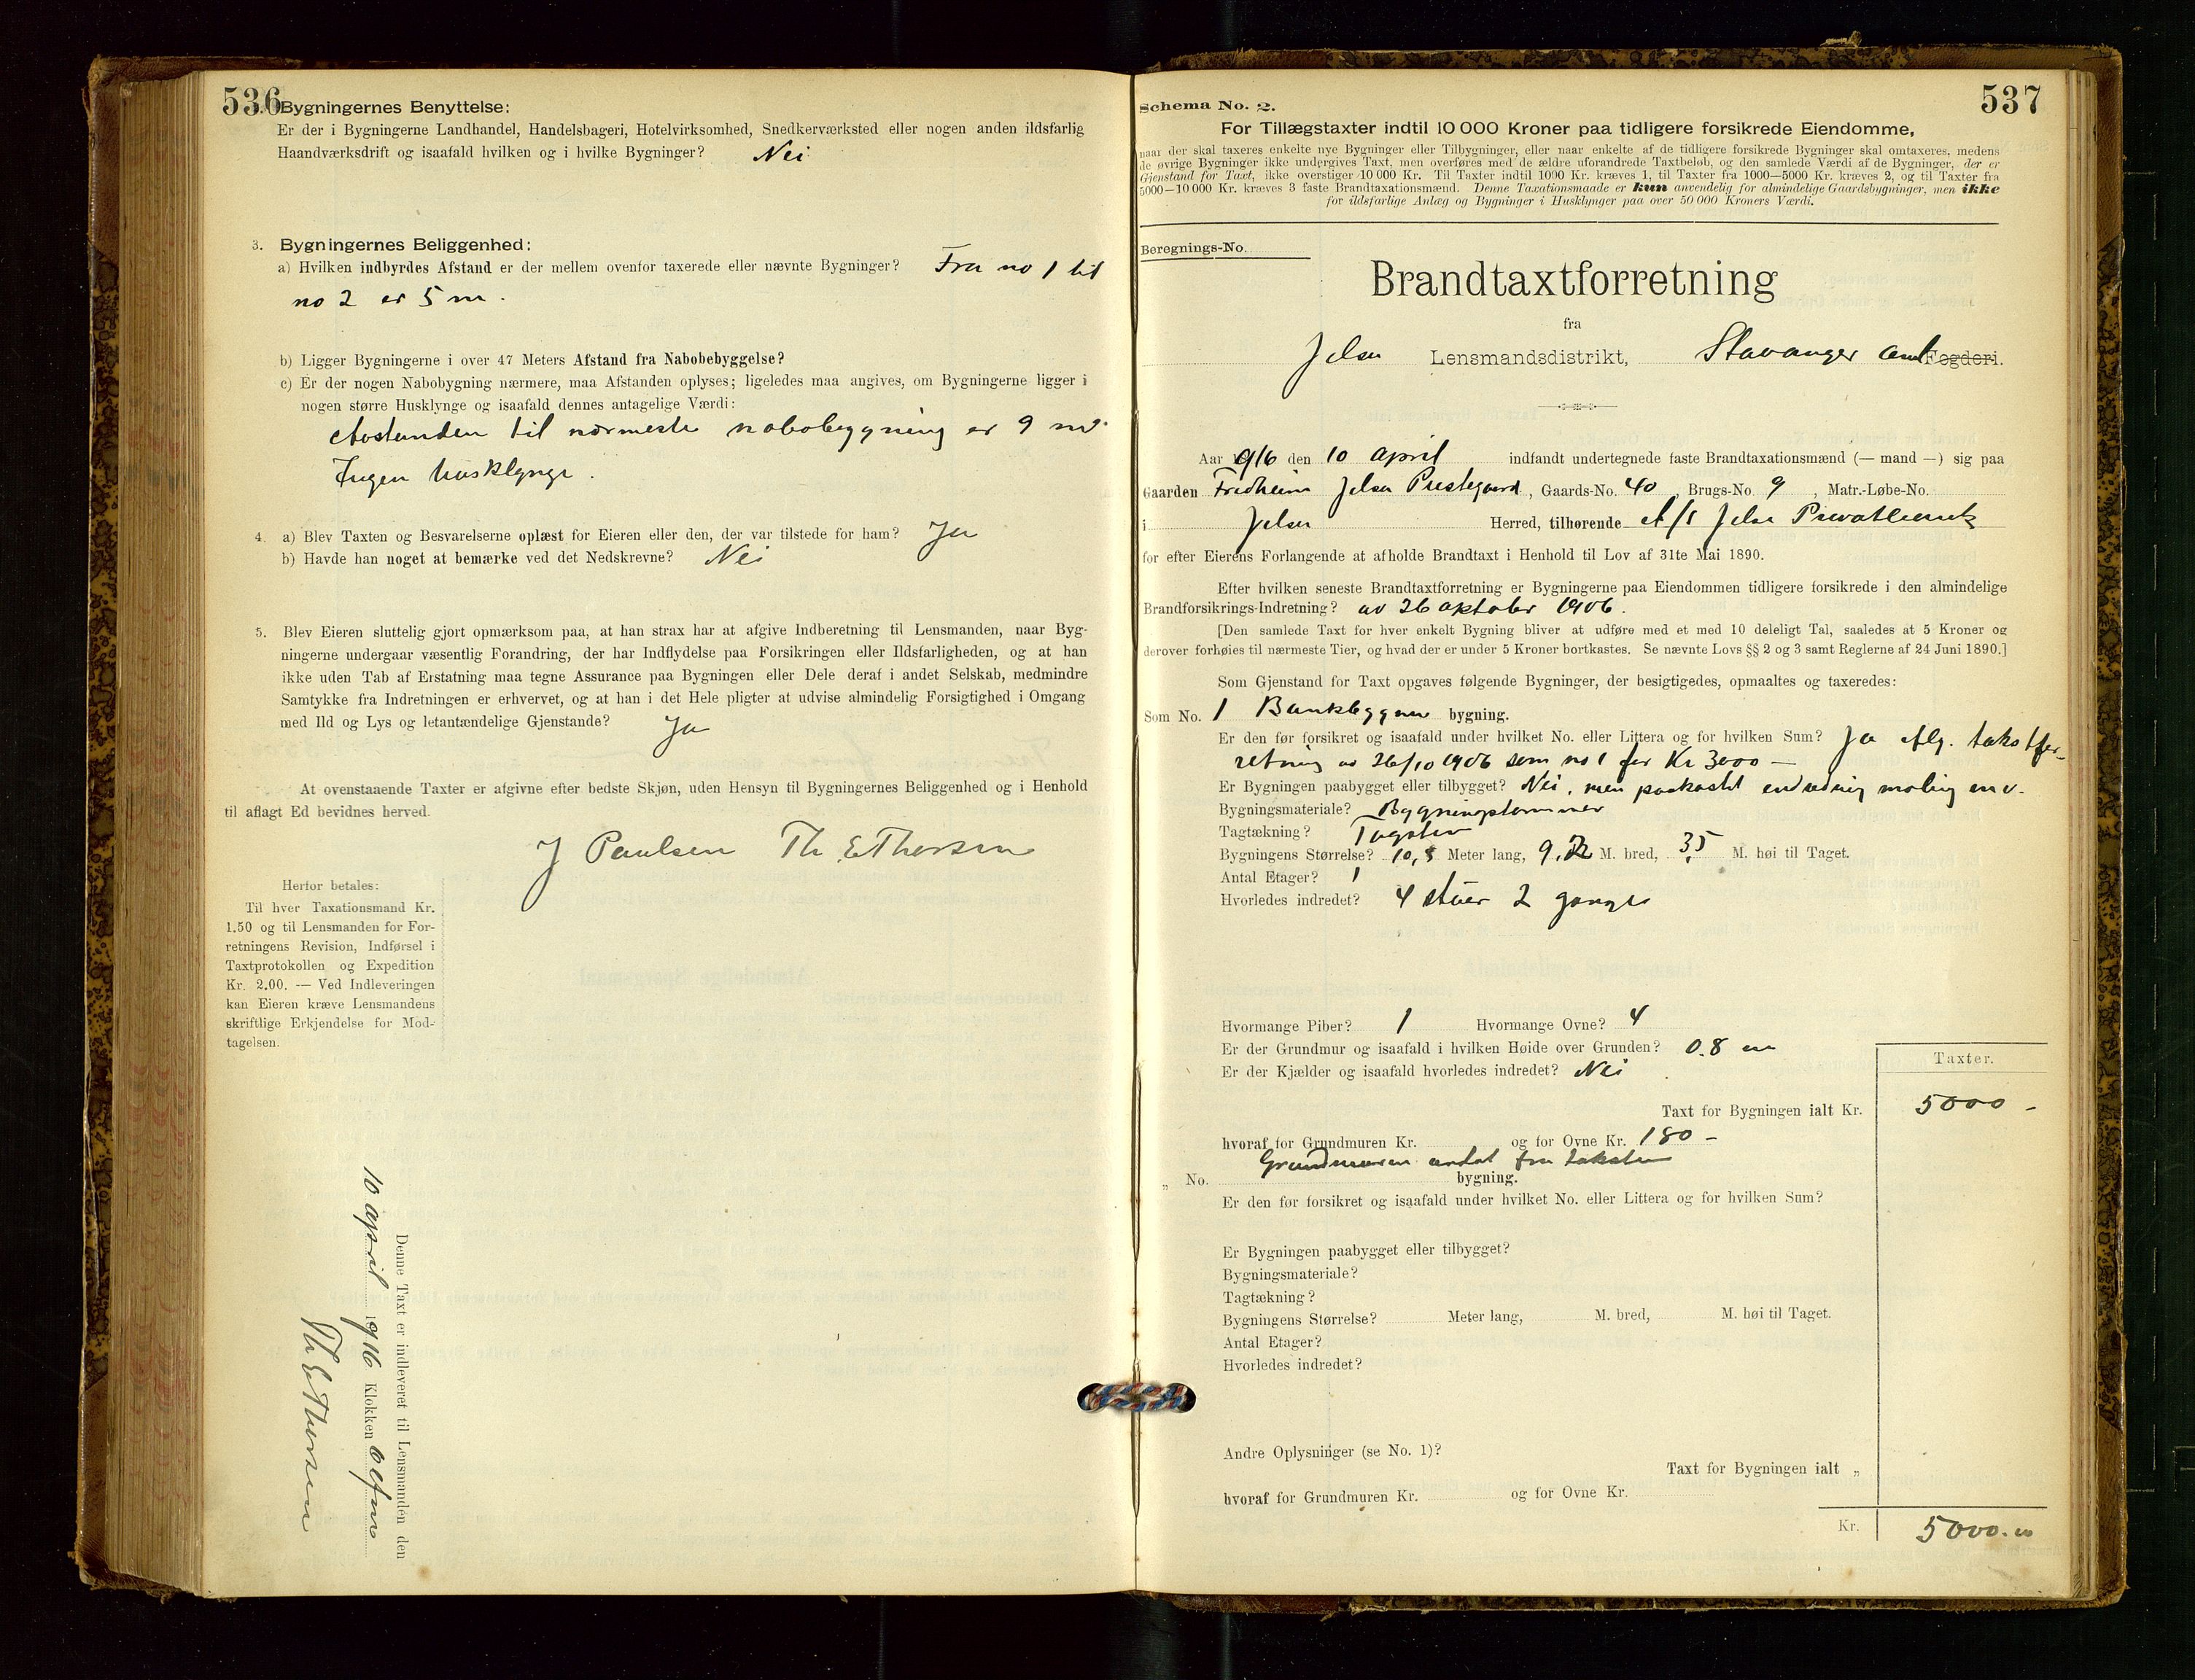 536
Bygningernes Benyttelse:
Er der i Bygningerne Landhandel, Handelsbageri, Hotelvirksomhed, Snedkerværksted eller nogen anden ildsfarlig
Haandværksdrift og isaafald hvilken og i hvilke Bygninger? Nei
3. Bygningernes Beliggenhed:
a) Hvilken indbyrdes Afstand er der mellem ovenfor taxerede eller nævnte Bygninger? Fra no 1 til
no 2 er 5 m.
b) Ligger Bygningerne i over 47 Meters Afstand fra Nabobebyggelse?
c) Er der nogen Nabobygning nærmere, maa Afstanden oplyses; ligeledes maa angives, om Bygningerne ligger i
nogen større Husklynge og isaafald dennes antagelige Værdi:
Avstanden til nærmeste nabobygning er 9 m.
Ingen husklynge.
4. a) Blev Taxten og Besvarelserne oplæst for Eieren eller den, der var tilstede for ham? Ja
b) Havde han noget at bemærke ved det Nedskrevne? Nei
5. Blev Eieren sluttelig gjort opmærksom paa, at han strax har at afgive Indberetning til Lensmanden, naar Byg-
ningerne undergaar væsentlig Forandring, der har Indflydelse paa Forsikringen eller Ildsfarligheden, og at han
ikke uden Tab af Erstatning maa tegne Assurance paa Bygningen eller Dele deraf i andet Selskab, medmindre
Samtykke fra Indretningen er erhvervet, og at han i det Hele pligter at udvise almindelig Forsigtighed i Omgang
med Ild og Lys og letantændelige Gjenstande? Ja
At ovenstaaende Taxter er afgivne efter bedste Skjøn, uden Hensyn til Bygningernes Beliggenhed og i Henhold
til aflagt Ed bevidnes herved.
J Paulsen Th. E Thorsen
Herfor betales:
Til hver Taxationsmand Kr.
1.50 og til Lensmanden for For-
retningens Revision, Indførsel i
Taxtprotokollen og Expedition
Kr. 2.00. — Ved Indleveringen
kan Eieren kræve Lensmandens
skriftlige Erkjendelse for Mod-
tagelsen.
Denne Taxt er indleveret til Lensmanden den
10 april 1916 Klokken 6 efm
Th E Thorsen
Schema No. 2.
537
For Tillægstaxter indtil 10 000 Kroner paa tidligere forsikrede Eiendomme,
naar der skal taxeres enkelte nye Bygninger eller Tilbygninger, eller naar enkelte af de tidligere forsikrede Bygninger skal omtaxeres, medens
de øvrige Bygninger ikke undergives Taxt, men overføres med de ældre uforandrede Taxtbeløb, og den samlede Værdi af de Bygninger, der er
Gjenstand for Taxt, ikke overstiger 10 000 Kr. Til Taxter indtil 1000 Kr. kræves 1, til Taxter fra 1000—5000 Kr. kræves 2, og til Taxter fra
5000—10 000 Kr. kræves 3 faste Brandtaxationsmænd. Denne Taxationsmaade er kun anvendelig for almindelige Gaardsbygninger, men ikke
for ildsfarlige Anlæg og Bygninger i Husklynger paa over 50 000 Kroners Værdi.
Beregnings-No.
Brandtaxtforretning
fra
Jelsa Lensmandsdistrikt, Stavanger amt Fogderi.
Aar 1916 den 10 april indfandt undertegnede faste Brandtaxationsmænd (— mand —) sig paa
Gaarden Fredheim Jelsa Prestegaard, Gaards-No. 40, Brugs-No. 9, Matr.-Løbe-No.
i Jelsa Herred, tilhørende A/S Jelsa Privatbank
for efter Eierens Forlangende at afholde Brandtaxt i Henhold til Lov af 31te Mai 1890.
Efter hvilken seneste Brandtaxtforretning er Bygningerne paa Eiendommen tidligere forsikrede i den almindelige
Brandforsikrings-Indretning? av 26 oktober 1906.
[Den samlede Taxt for hver enkelt Bygning bliver at udføre med et med 10 deleligt Tal, saaledes at 5 Kroner og
derover forhøies til nærmeste Tier, og hvad der er under 5 Kroner bortkastes. Se nævnte Lovs §§ 2 og 3 samt Reglerne af 24 Juni 1890.]
Som Gjenstand for Taxt opgaves følgende Bygninger, der besigtigedes, opmaaltes og taxeredes:
Som No. 1 bygning.
Er den før forsikret og isaafald under hvilket No. eller Littera og for hvilken Sum? Ja iflg. takstfor-
retning av 26/10 1906 som no 1 for Kr 3000 —
Er Bygningen paabygget eller tilbygget? Nei, men paakostet
Bygningsmateriale? Bygningstømmer
Tagtækning? Tagsten
Bygningens Størrelse? 10,5 Meter lang, M. bred, 3,5 M. høi til Taget.
Antal Etager? 1
Hvorledes indredet? 4 stuer 2 ganger
Hvormange Piber? 1 Hvormange Ovne? 4
Er der Grundmur og isaafald i hvilken Høide over Grunden? 0.8 m
Er der Kjælder og isaafald hvorledes indredet? Nei
Taxter.
Taxt for Bygningen ialt Kr. 5000 -
hvoraf for Grundmuren Kr. og for Ovne Kr. 180 –
Grundmuren undtat fra taksten
„ No. bygning.
Er den før forsikret og isaafald under hvilket No. eller Littera og for hvilken Sum?
Er Bygningen paabygget eller tilbygget?
Bygningsmateriale?
Tagtækning?
Bygningens Størrelse? Meter lang, M. bred, M. høi til Taget.
Antal Etager?
Hvorledes indredet?
Andre Oplysninger (se No. 1)?
Taxt for Bygningen ialt „
hvoraf for Grundmuren Kr. og for Ovne Kr.
Kr. 5000.00